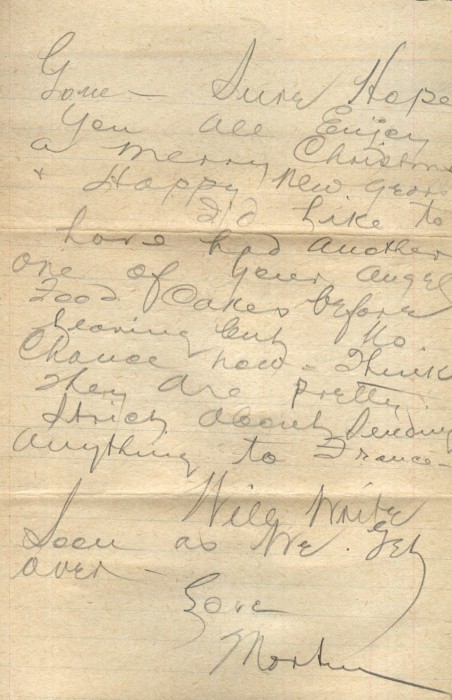 Gone - Sure Hope
You all Enjoy
a merry Christmas
+ Happy New Years
I'd Like to
have had another
one of your angel
Food Cakes before
Leaving but No
Chance now - Think
they are pretty
strict about sending
anything to France -
Will Write
Soon as We Get
over -
Love
Morton